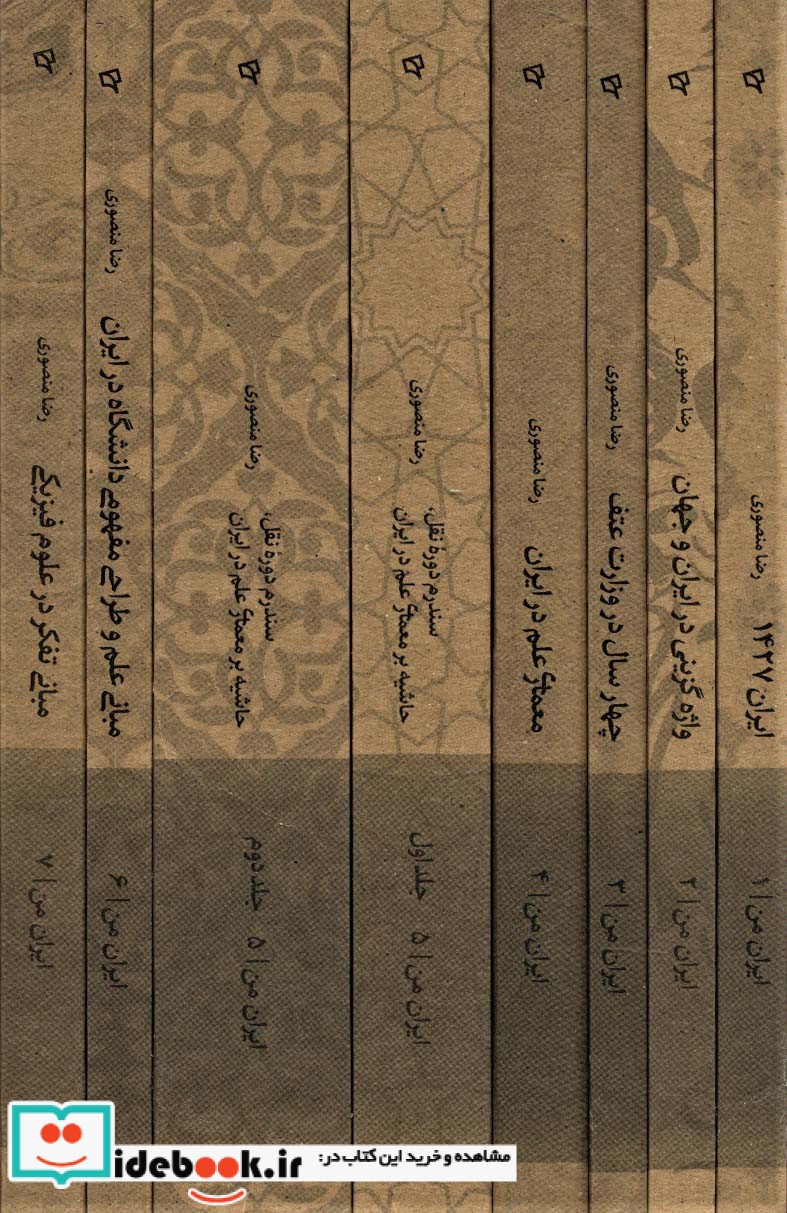 رضا منصوری
ایران ۱۴۲۷
ایران من | ۱
رضا منصوری
واژه گزینی در ایران و جهان
ایران من | ۲
رضا منصوری
چهار سال در وزارت عتف
ایران من | ۳
رضا منصوری
معمای علم در ایران
ایران من | ۴
رضا منصوری
سندرم دورهٔ نقل،
حاشیه بر معمای علم در ایران
جلد اول
ایران من | ۵
رضا منصوری
سندرم دورهٔ نقل،
حاشیه بر معمای علم در ایران
جلد دوم
ایران من | ۵
رضا منصوری
مبانی علم و طراحی مفهومی دانشگاه در ایران
ایران من | ۶
رضا منصوری
مبانی تفکر در علوم فیزیکی
ایران من | ۷
مشاهده و خرید این کتاب در:
idebook.ir